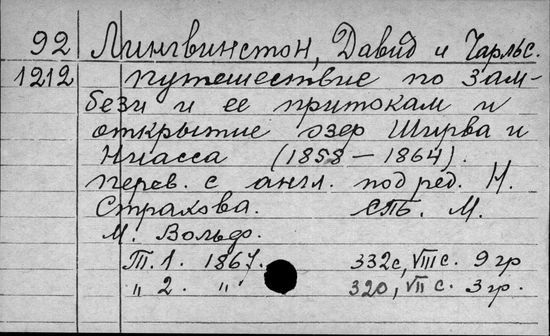 92 Лингвинстон, Давид и Чарльс.
1212 Путешествие по Зам-
бези и ее притокам и
открытие озер Ширва и
Ниасса (1858 – 1864).
Перев. с англ. под ред. Н.
Страхова. СПб. М.
М. Вольф.
Т. 1. 1867. 332 с, VIII с. 9 гр
" 2. " 320, VII с. 3 гр.